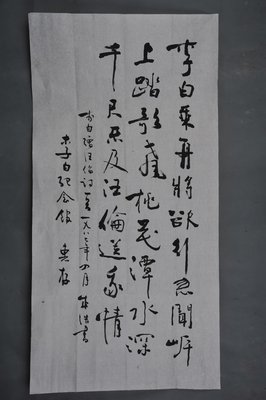 李白乘舟將欲行忽聞岸
上踏歌聲桃花潭水深
千尺不及汪倫送我情
李白贈汪倫詩一首一九八三年四月 書
李白紀念館 惠存